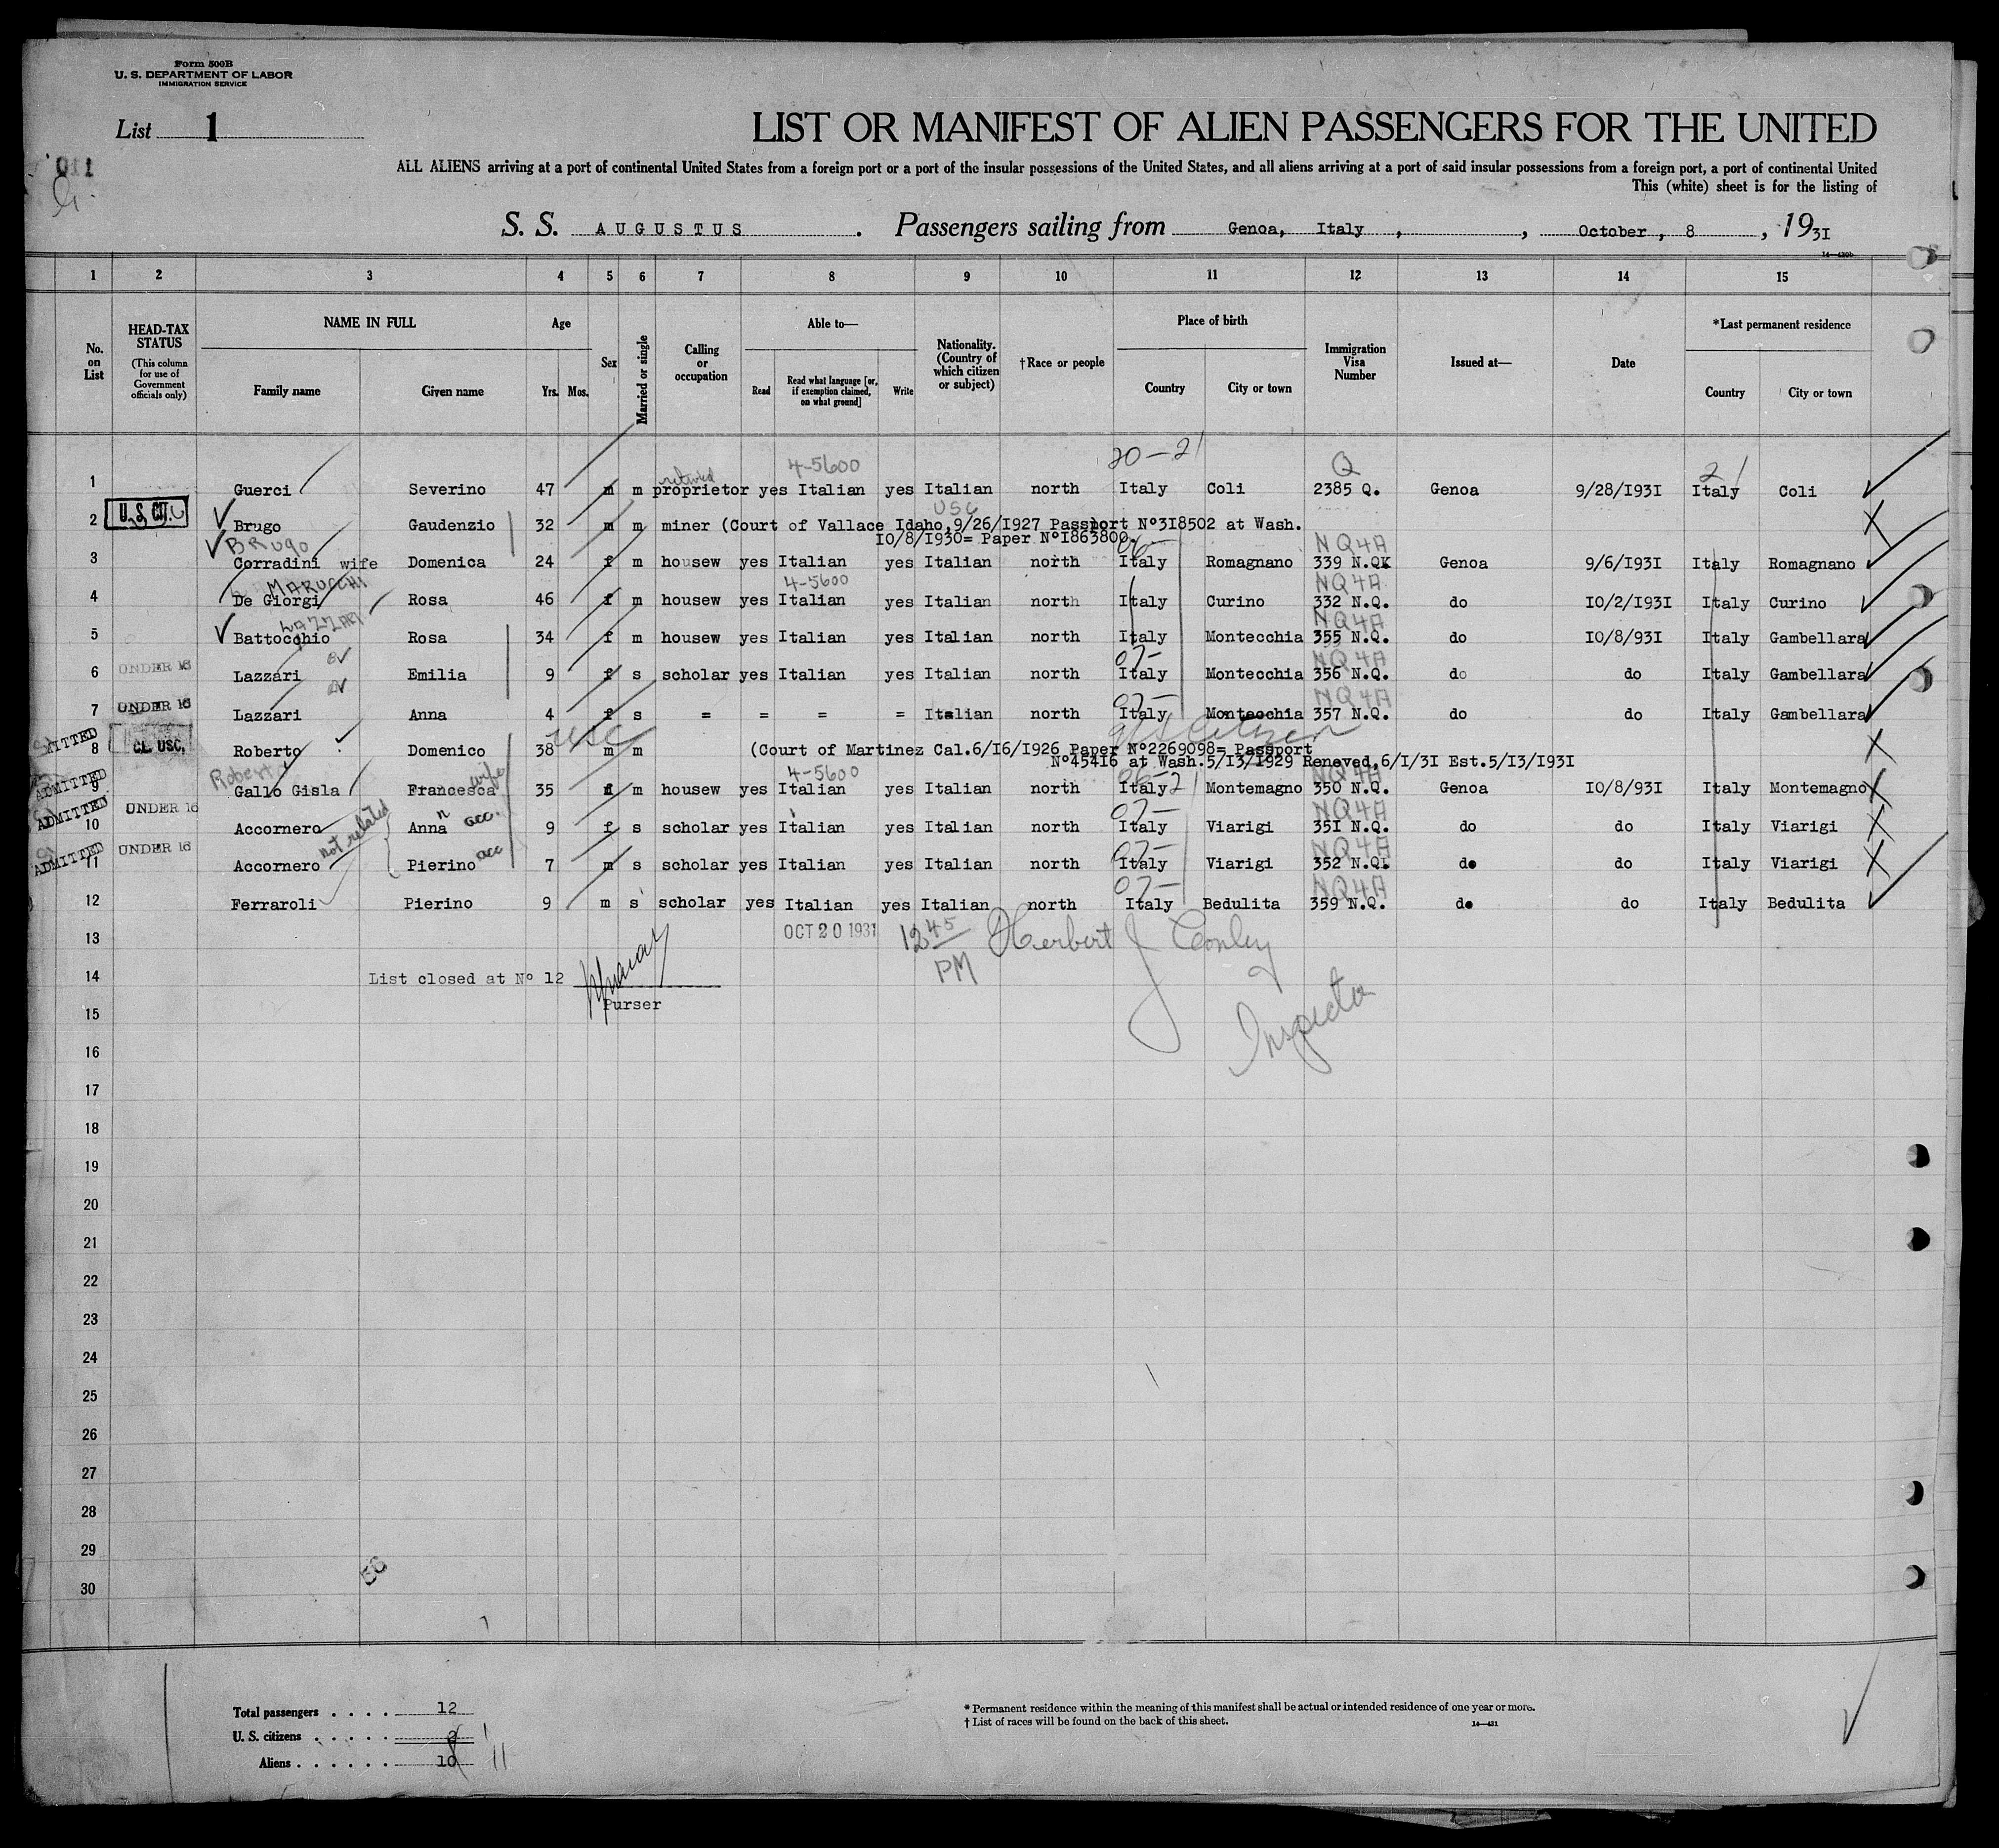 Form 500B
U. S. DEPARTMENT OF LABOR
IMMIGRATION SERVICE
List 1
LIST OR MANIFEST OF ALIEN PASSENGERS FOR THE UNITED
011
ALL ALIENS arriving at a port of continental United States from a foreign port or a port of the insular possessions of the United States, and all aliens arriving at a port of said insular possessions from a foreign port, a port of continental United
This (white) sheet is for the listing of
S. S. AUGUSTUS . Passengers sailing from Genoa, Italy , , October , 8 , 1931
14—430b
1 2 3 4 5 6 7 8 9 10 11 12 13 14 15
No. on List
HEAD-TAX STATUS
(This column for use of Government officials only)
NAME IN FULL
Family name Given name
Age
Yrs. Mos.
Sex
Married or single
Calling or occupation
Able to—
Read
Read what language [or, if exemption claimed, on what ground]
Write
Nationality. (Country of which citizen or subject)
†Race or people
Place of birth
Country City or town
Immigration Visa Number
Issued at—
Date
*Last permanent residence
Country City or town
retired 4-5600 20-21 Q 21
1 Guerci Severino 47 m m proprietor yes Italian yes Italian north Italy Coli 2385 Q. Genoa 9/28/I93I Italy Coli
U.S. CIT. USC
2 Brugo Gaudenzio 32 m m miner (Court of Vallace Idaho,9/26/I927 Passport Nº3I8502 at Wash.
I0/8/I930= Paper NºI863800.
BRUGO 06- NQ4A
3 Corradini wife Domenica 24 f m housew yes Italian yes Italian north Italy Romagnano 339 N.QK Genoa 9/6/I93I Italy Romagnano
MARUCCHI 4-5600 NQ4A
4 De Giorgi Rosa 46 f m housew yes Italian yes Italian north Italy Curino 332 N.Q. do I0/2/I93I Italy Curino
LAZZARI NQ4A
5 Battocchio Rosa 34 f m housew yes Italian yes Italian north Italy Montecchia 355 N.Q. do I0/8/93I Italy Gambellara
UNDER 16 07- NQ4A
6 Lazzari Emilia 9 f s scholar yes Italian yes Italian north Italy Montecchia 356 N.Q. do do Italy Gambellara
UNDER 16 07- NQ4A
7 Lazzari Anna 4 f s = = = = Italian north Italy Montecchia 357 N.Q. do do Italy Gambellara
CL. USC. USC US Citizen
8 Roberto Domenico 38 m m (Court of Martinez Cal.6/I6/I926 Paper Nº2269098= Passport
Nº454I6 at Wash.5/I3/I929 Reneved,6/I/3I Est.5/I3/I93I
ADMITTED Roberto wife 4-5600 06-2 NQ4A
9 Gallo Gisla Francesca 35 f m housew yes Italian yes Italian north Italy Montemagno 350 N.Q. Genoa I0/8/93I Italy Montemagno
ADMITTED UNDER 16 acc. 07- NQ4A
10 Accornero Anna 9 f s scholar yes Italian yes Italian north Italy Viarigi 35I N.Q. do do Italy Viarigi
not related
ADMITTED UNDER 16 acc 07- NQ4A
11 Accornero Pierino 7 m s scholar yes Italian yes Italian north Italy Viarigi 352 N.Q. do do Italy Viarigi
07- NQ4A
12 Ferraroli Pierino 9 m s scholar yes Italian yes Italian north Italy Bedulita 359 N.Q. do do Italy Bedulita
13 OCT 20 1931 12 45 PM Herbert J Conley
14 List closed at Nº 12
Inspector
15 Purser
16
17
18
19
20
21
22
23
24
25
26
27
28
29
30
Total passengers . . . . 12
U. S. citizens . . . . . 2 1
Aliens . . . . . . 10 11
* Permanent residence within the meaning of this manifest shall be actual or intended residence of one year or more.
† List of races will be found on the back of this sheet.
14—431